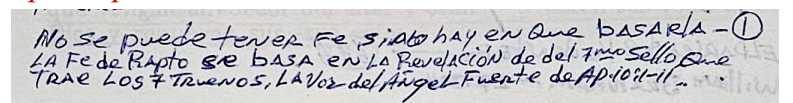 No se puede tener Fe, si no hay en que basarla - ①
La Fe de Rapto se basa en la Revelación de del 7mo Sello que
trae los 7 Truenos, La Voz del Ángel Fuerte de Ap-10:1-11-.